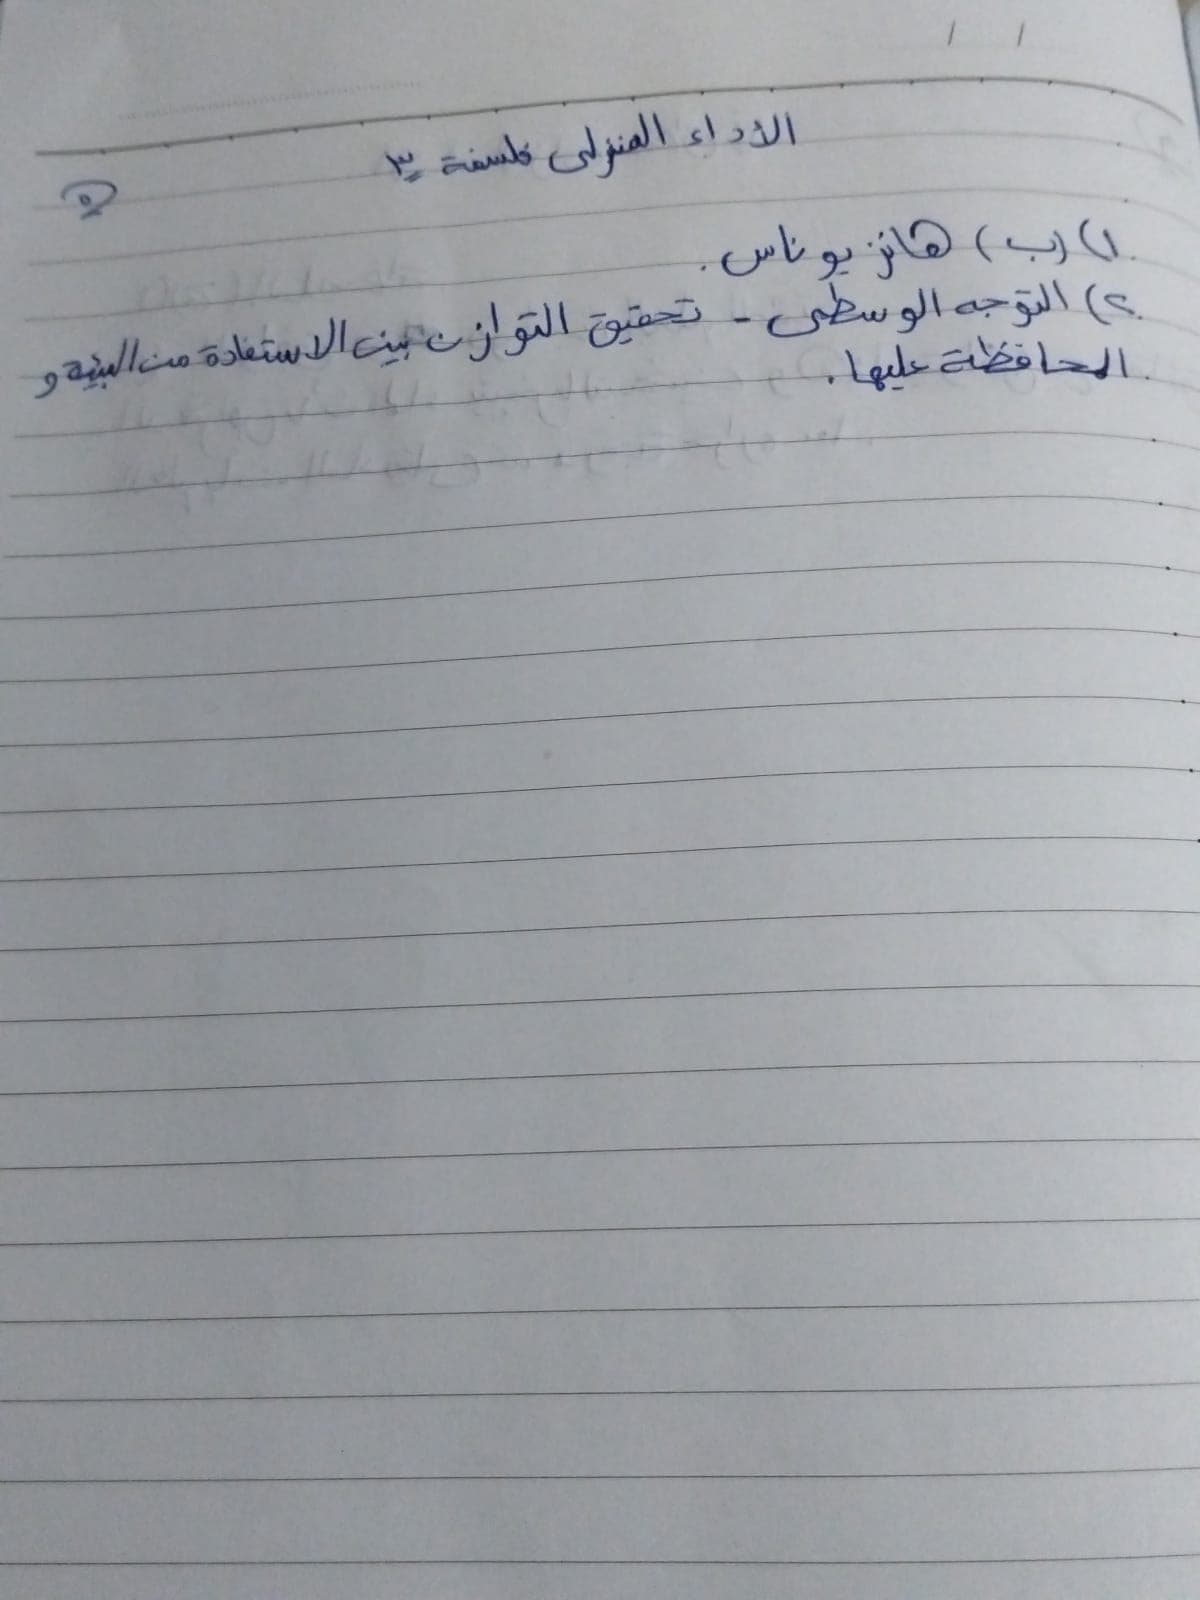 الاداء المنزلى فلسفة ٣
٥
١) (ب) هانز يوناس.
٢) التوجه الوسطى - تحقيق التوازن بين الاستفادة من البيئة و
المحافظة عليها.